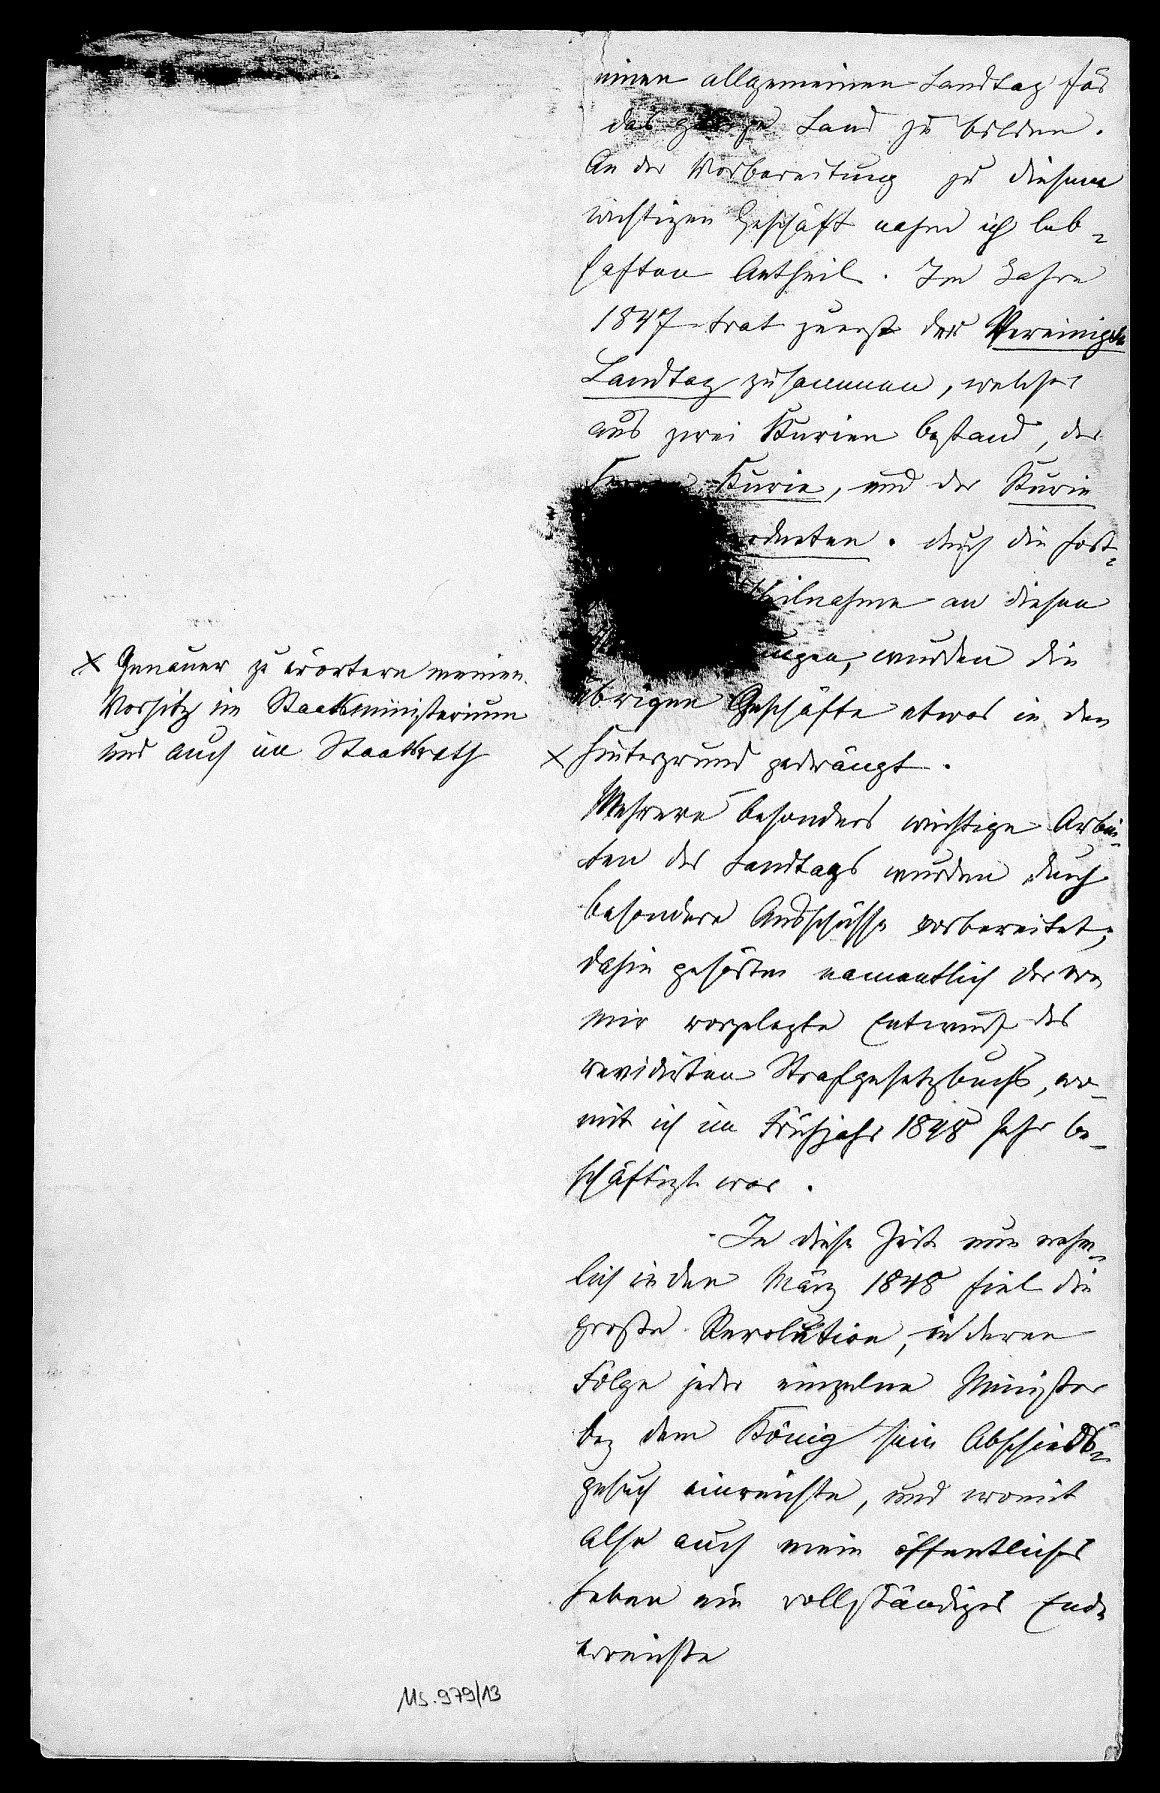 einen allgemeinen Landtag für
das ganze Land zu bilden.
An der Vorbereitung zu diesem
wichtigen Geschäft nahm ich leb-
haften Antheil. Im Jahre
1847 trat zuerst der Vereinigte
Landtag zusammen, welcher
aus zwei Kurien bestand, der
Kurie, und der Kurie
ordneten. durch die fort-
heilnahme an diesen
ungen, wurden die
übrigen Geschäfte etwas in den
x Hintergrund gedrängt.
x Genauer zu erörtern meinen
Vorsitz im Staatsministerium
und auch im Staatsrath
Mehrere besonders wichtige Arbei-
ten des Landtags wurden durch
besondere Ausschüsse vorbereitet;
dahin gehörten namentlich der von
mir vorgelegte Entwurf des
revidirten Strafgesetzbuchs, wo-
mit ich im Frühjahr 1848 sehr be-
schäftigt war.
In diese Zeit nun nehm-
lich in den März 1848 fiel die
große Revolution, in deren
Folge jeder einzelne Minister
bey dem König sein Abschieds-
gesuch einreichte, und womit
also auch mein öffentliches
Leben ein vollständiges Ende
erreichte
Ms. 979/13